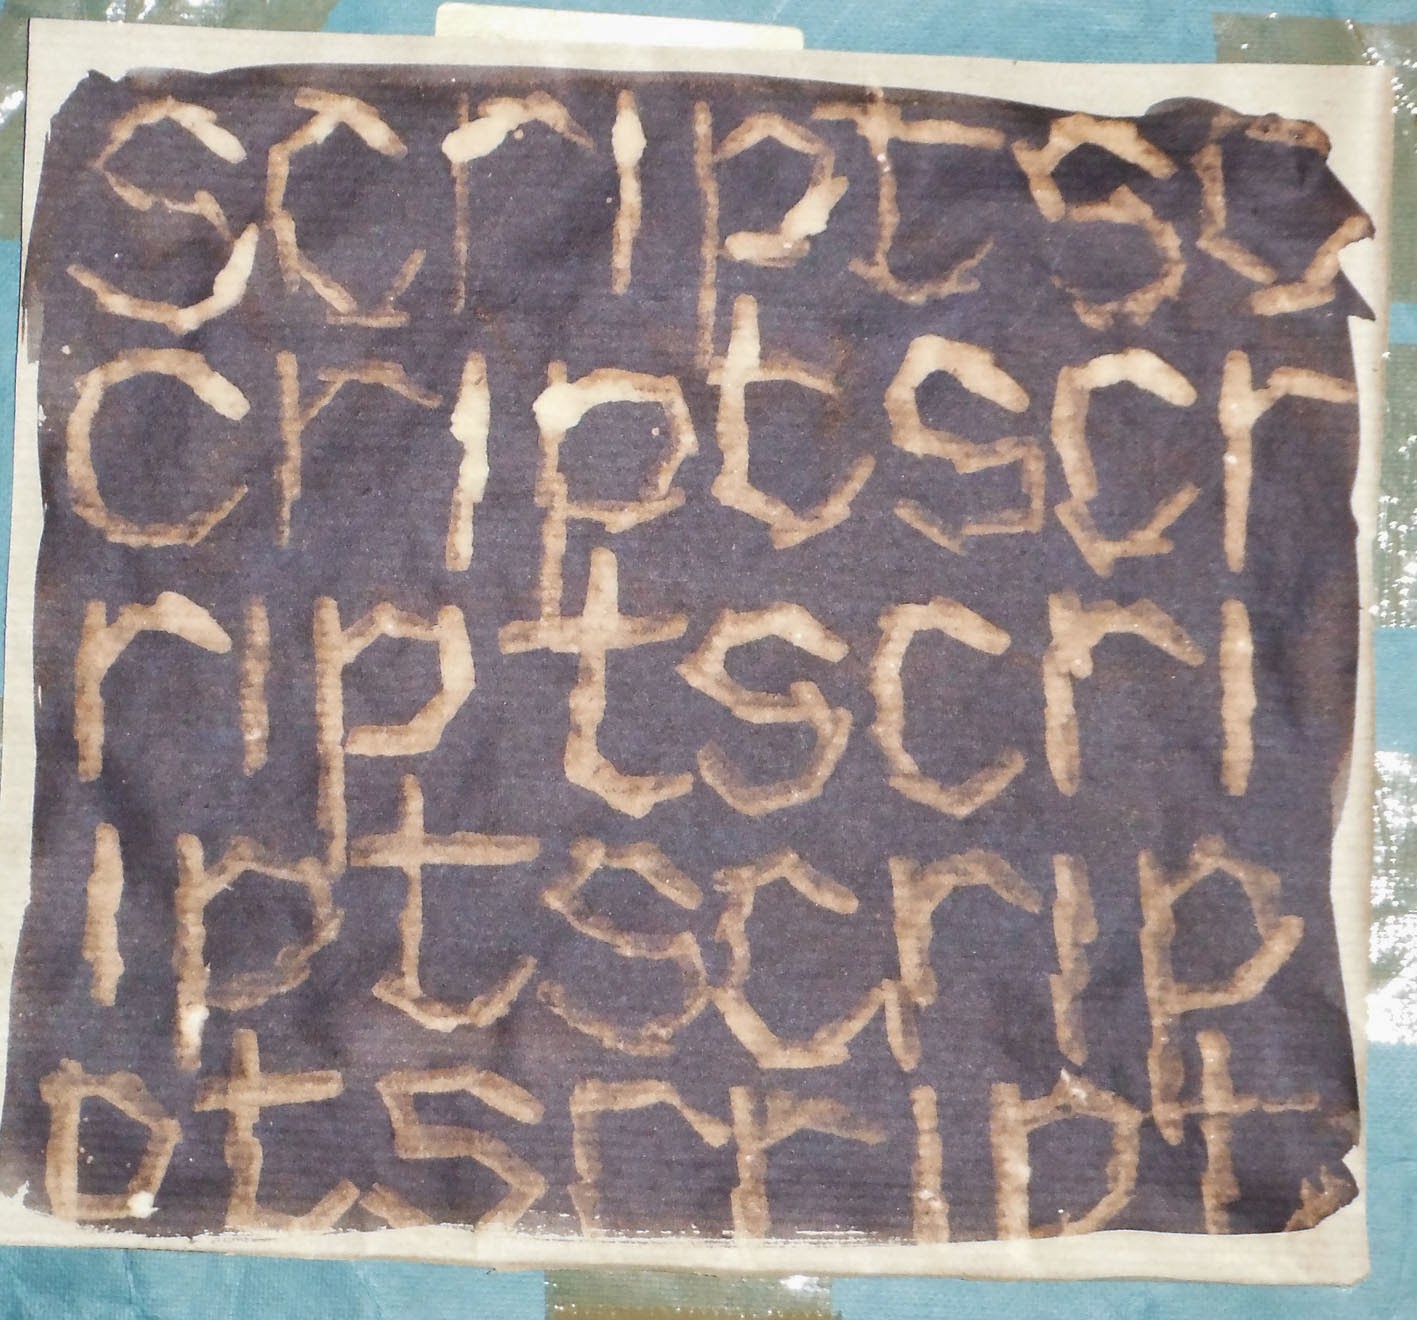 scriptsc
criptscr
riptscri
iptscrip
ptscript